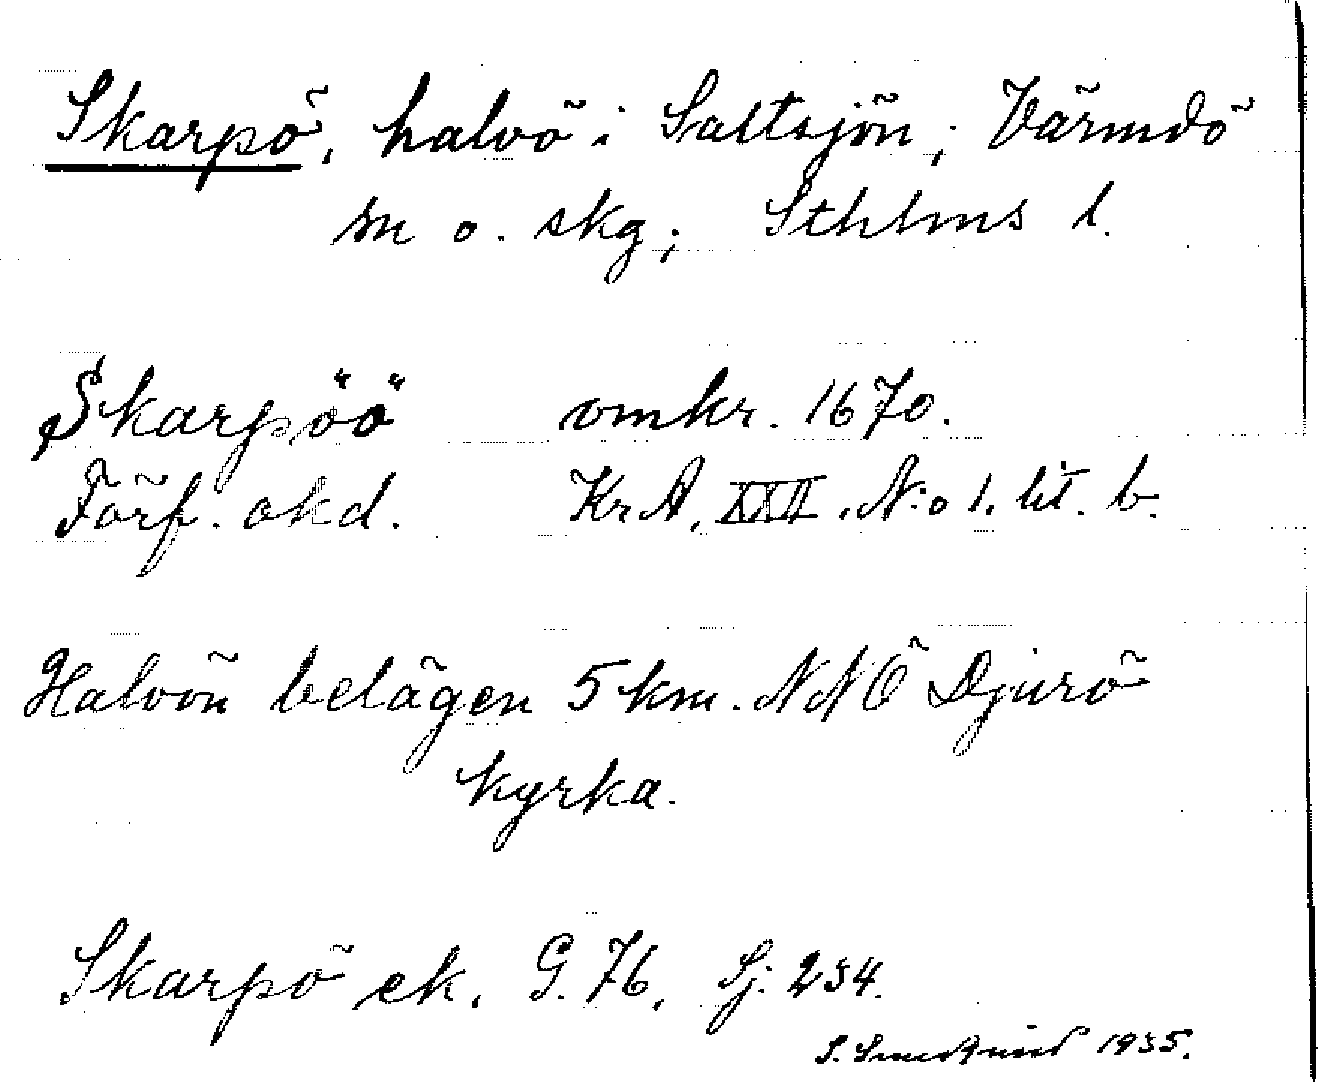 Skarpö, halvö i Saltsjön; Värmdö
m o. skg; Sthlms l.
Skarpöö omkr. 1670.
Förf. okd. KrA, XXII, N:o 1. lit. b.
Halvön belägen 5 km. NNÖ Djurö
kyrka.
Skarpö ek. G. 76, Sj: 234.
S. 1935.